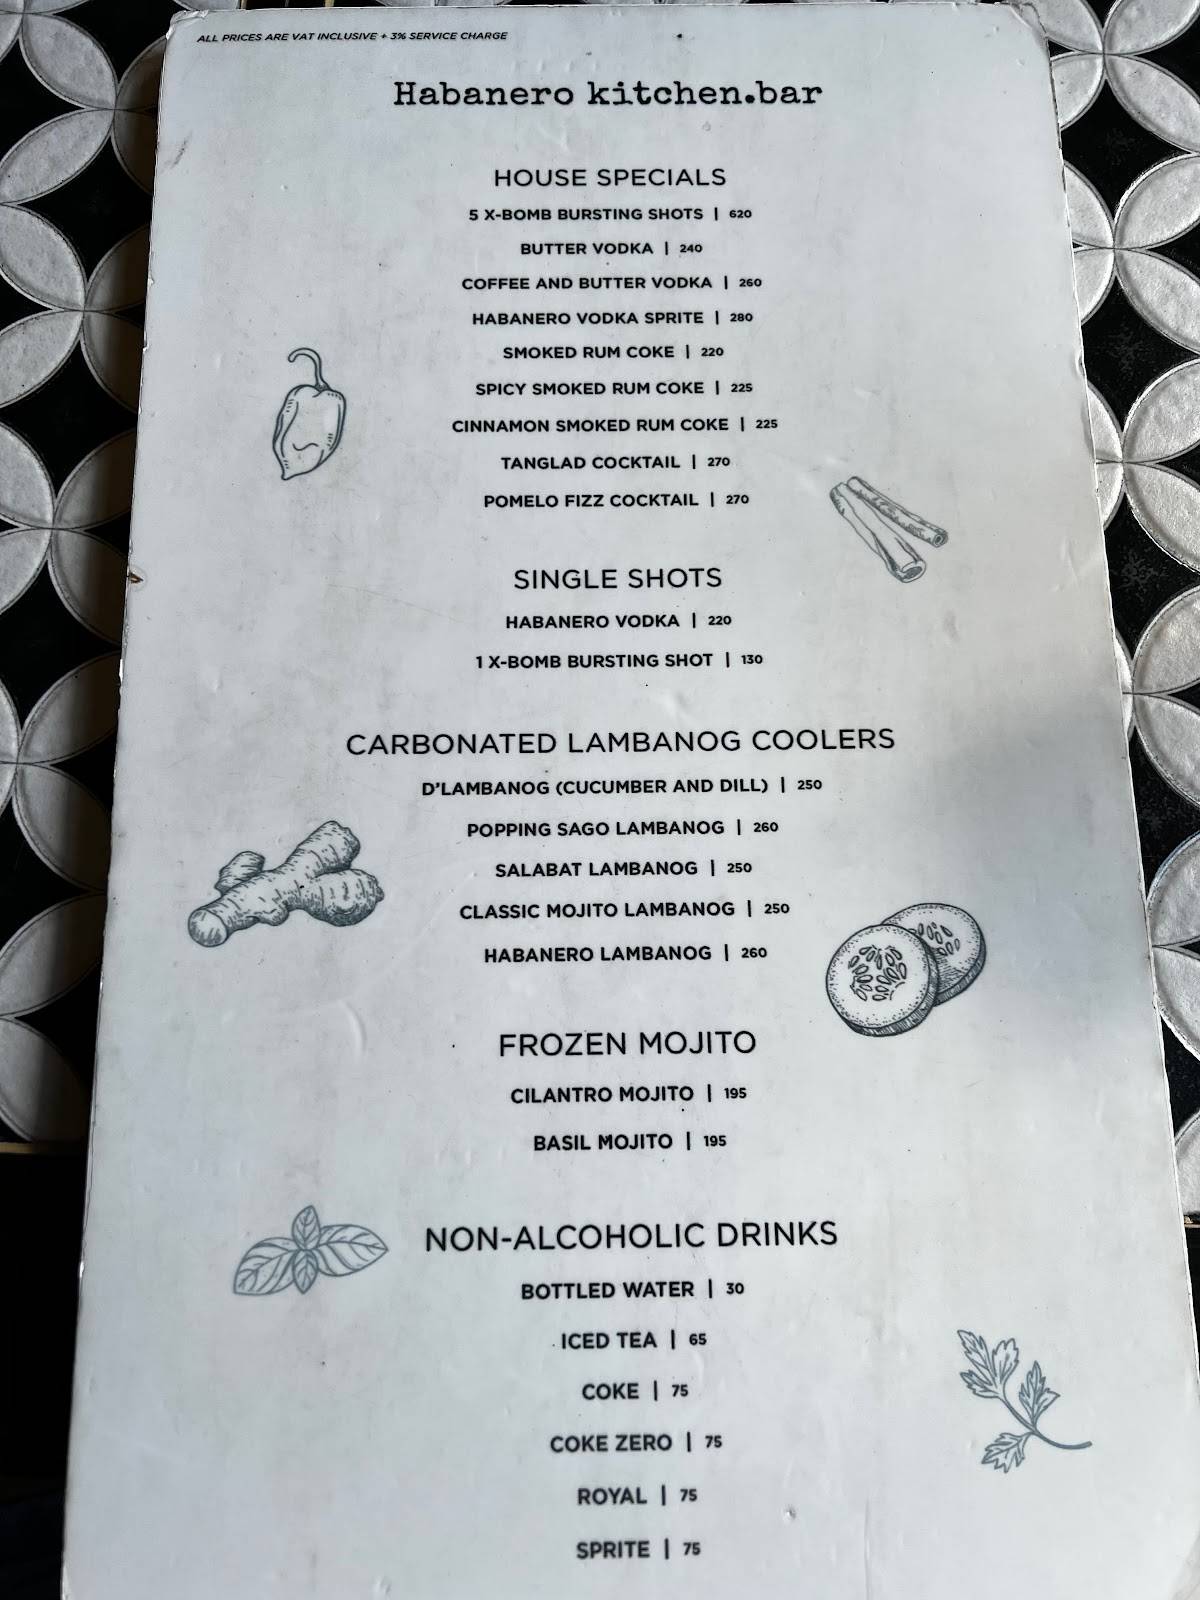 ALL PRICES ARE VAT INCLUSIVE + 3% SERVICE CHARGE
Habanero kitchen.bar
HOUSE SPECIALS
5 X-BOMB BURSTING SHOTS | 620
BUTTER VODKA | 240
COFFEE AND BUTTER VODKA | 260
HABANERO VODKA SPRITE | 280
SMOKED RUM COKE | 220
SPICY SMOKED RUM COKE | 225
CINNAMON SMOKED RUM COKE | 225
TANGLAD COCKTAIL | 270
POMELO FIZZ COCKTAIL | 270
SINGLE SHOTS
HABANERO VODKA | 220
1 X-BOMB BURSTING SHOT | 130
CARBONATED LAMBANOG COOLERS
D'LAMBANOG (CUCUMBER AND DILL) | 250
POPPING SAGO LAMBANOG | 260
SALABAT LAMBANOG | 250
CLASSIC MOJITO LAMBANOG | 250
HABANERO LAMBANOG | 260
FROZEN MOJITO
CILANTRO MOJITO | 195
BASIL MOJITO | 195
NON-ALCOHOLIC DRINKS
BOTTLED WATER | 30
ICED TEA | 65
COKE | 75
COKE ZERO | 75
ROYAL | 75
SPRITE | 75